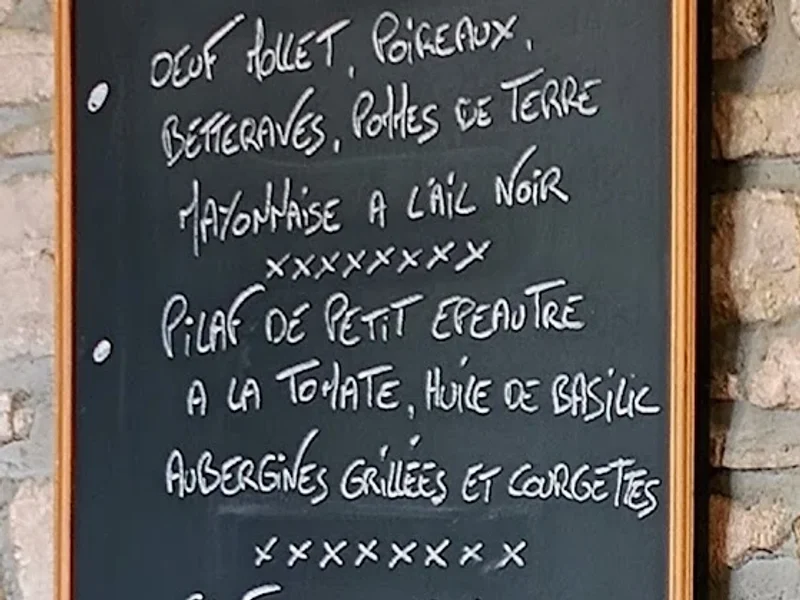 OEUF MOLLET, POIREAUX,
BETTERAVES, POMMES DE TERRE
MAYONNAISE A L'AIL NOIR
xxxxxxxx
PILAF DE PETIT EPEAUTRE
A LA TOMATE, HUILE DE BASILIC
AUBERGINES GRILLÉES ET COURGETTES
xxxxxxxx